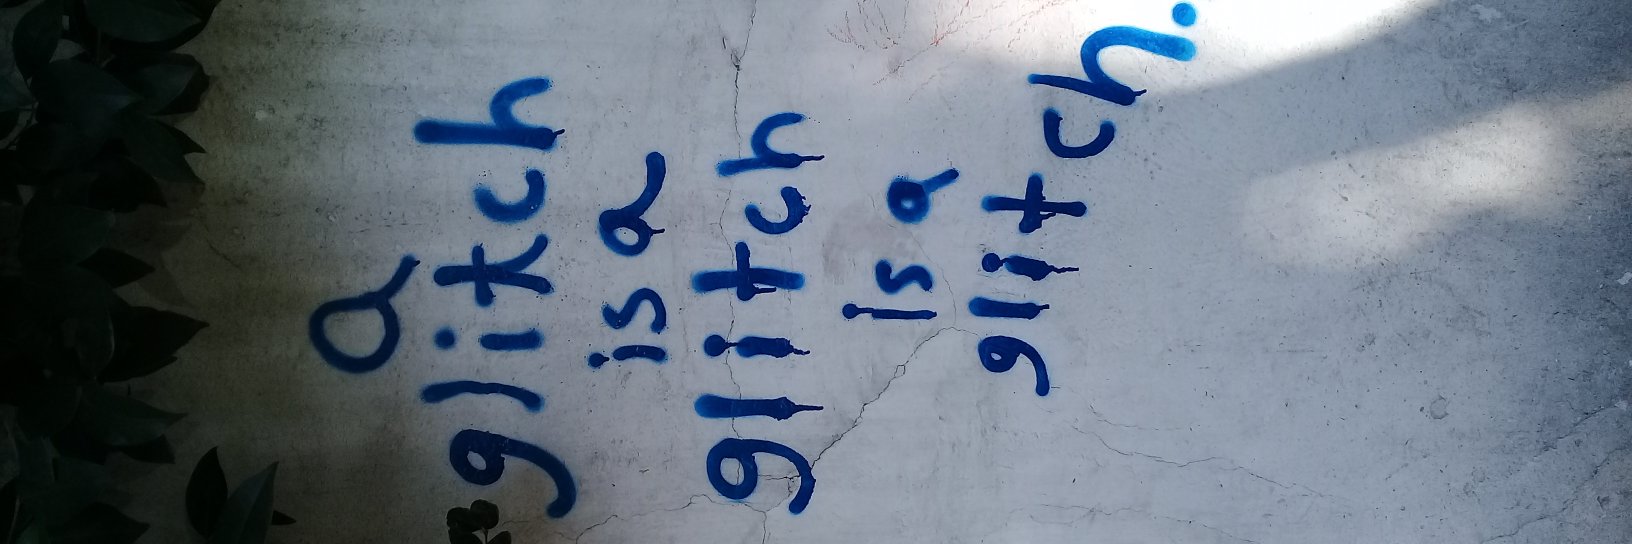 a
glitch
is a
glitch
is a
glitch.